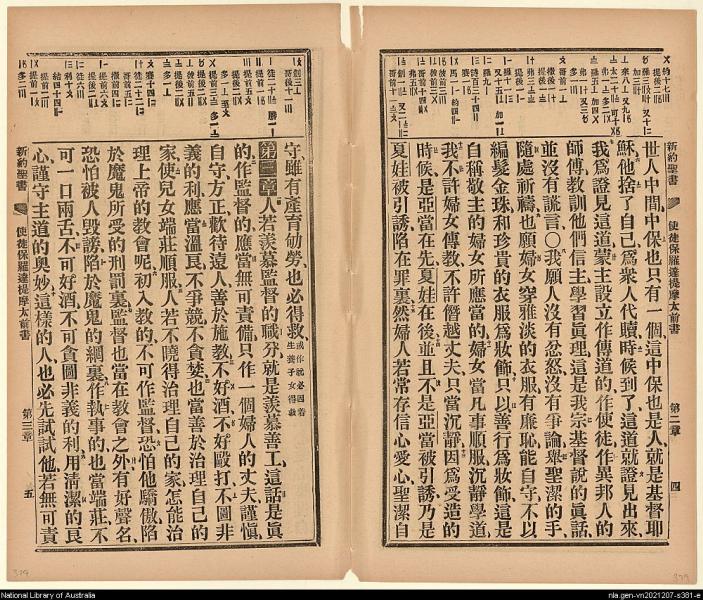 新約聖書
使徒保羅達提摩太前書
第二章
四
世人中間中保也只有一個、這中保也是人、就是基督耶
穌、他捨了自己、爲衆人代贖、時候到了、這道就證見出來、
我爲證見這道、蒙主設立、作傳道的、作使徒、作異邦人的
師傅、教訓他們信主、學習眞理、這是我宗基督說的眞話、
並沒有謊言、〇我願人沒有忿怒、沒有爭論、舉聖潔的手、
隨處祈禱、也願婦女穿雅淡的衣服、有廉恥、能自守、不以
編髮金珠、和珍貴的衣服爲妝飾、只以善行爲妝飾、這是
自稱敬主的婦女所應當的、婦女當凡事順服、沉靜學道、
我不許婦女傳教、不許僭越丈夫、只當沉靜、因爲受造的
時候、是亞當在先、夏娃在後、並且不是亞當被引誘、乃是
夏娃被引誘、陷在罪裏、然婦人若常存信心愛心、聖潔自
守、雖有產育劬勞、也必得救、
第三章 人若羨慕監督的職分、就是羨慕善工、這話是眞
的、作監督的、應當無可責備、只作一個婦人的丈夫、謹愼、
自守、方正、款待遠人、善於施教、不好酒、不好毆打、不圖非
義的利、應當溫良、不爭競、不貪婪、也當善於治理自己的
家、使兒女端莊順服、人若不曉得治理自己的家、怎能治
理上帝的教會呢、初入教的、不可作監督、恐怕他驕傲、陷
於魔鬼所受的刑罰裏、監督也當在教會之外有好聲名、
恐怕被人毀謗、陷於魔鬼的綱裏、作執事的、也當端莊、不
可一口兩舌、不可好酒、不可貪圖非義的利、用淸潔的良
心、謹守主道的奧妙、這樣的人、也必先試試他、若無可責
新約聖書
使徒保羅達提摩太前書
第三章
五
379
379
National Library of Australia
nla.gen-vn2021207-s381-e